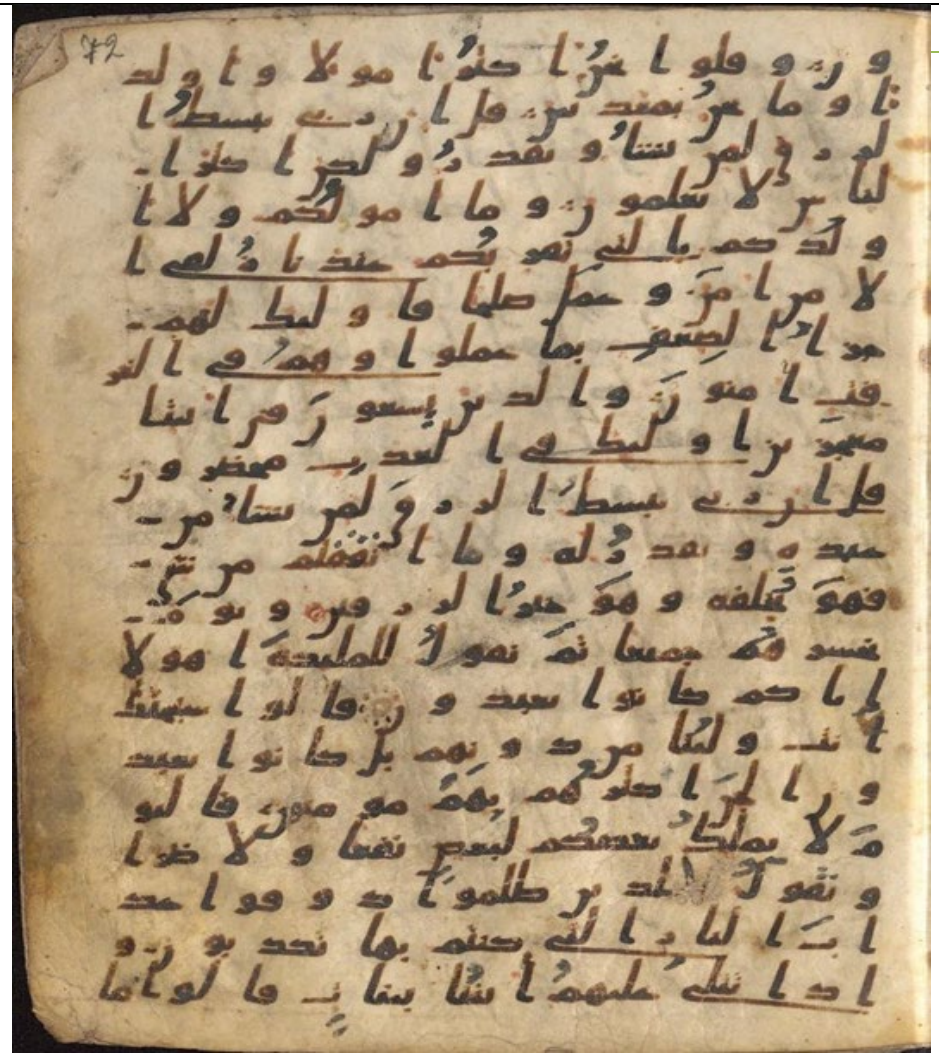 ون وقلوا نحن اكثر امولا واولد
ا وما نحن بمعذبين قل ان ربى يبسط ا
لرزق لمن يشا ويقدر ولكن اكثر ا
لناس لا يعلمون وما امولكم ولا ا
ولدكم بالتى تقربكم عندنا زلفى ا
لا من امن وعمل صلحا فاوليك لهم
جزا الضعف بما عملوا وهم فى الغر
فت امنون والذين يسعون فى ايتنا
معجزين اوليك فى العذب محضرون
قل ان ربى يبسط الرزق لمن يشا من
عبده ويقدر له وما انفقتم من شى
فهو يخلفه وهو خير الرزقين ويوم
نحشرهم جميعا ثم نقول للمليكة اهولا
اياكم كانوا يعبدون قالوا سبحنك
انت ولينا من دونهم بل كانوا يعبد
ون الجن اكثرهم بهم مومنون فاليو
م لا يملك بعضكم لبعض نفعا ولا ضرا
ونقول للذين ظلموا ذوقوا عذ
اب النار التى كنتم بها تكذبون و
اذا تتلى عليهم ايتنا بينت قالوا ما